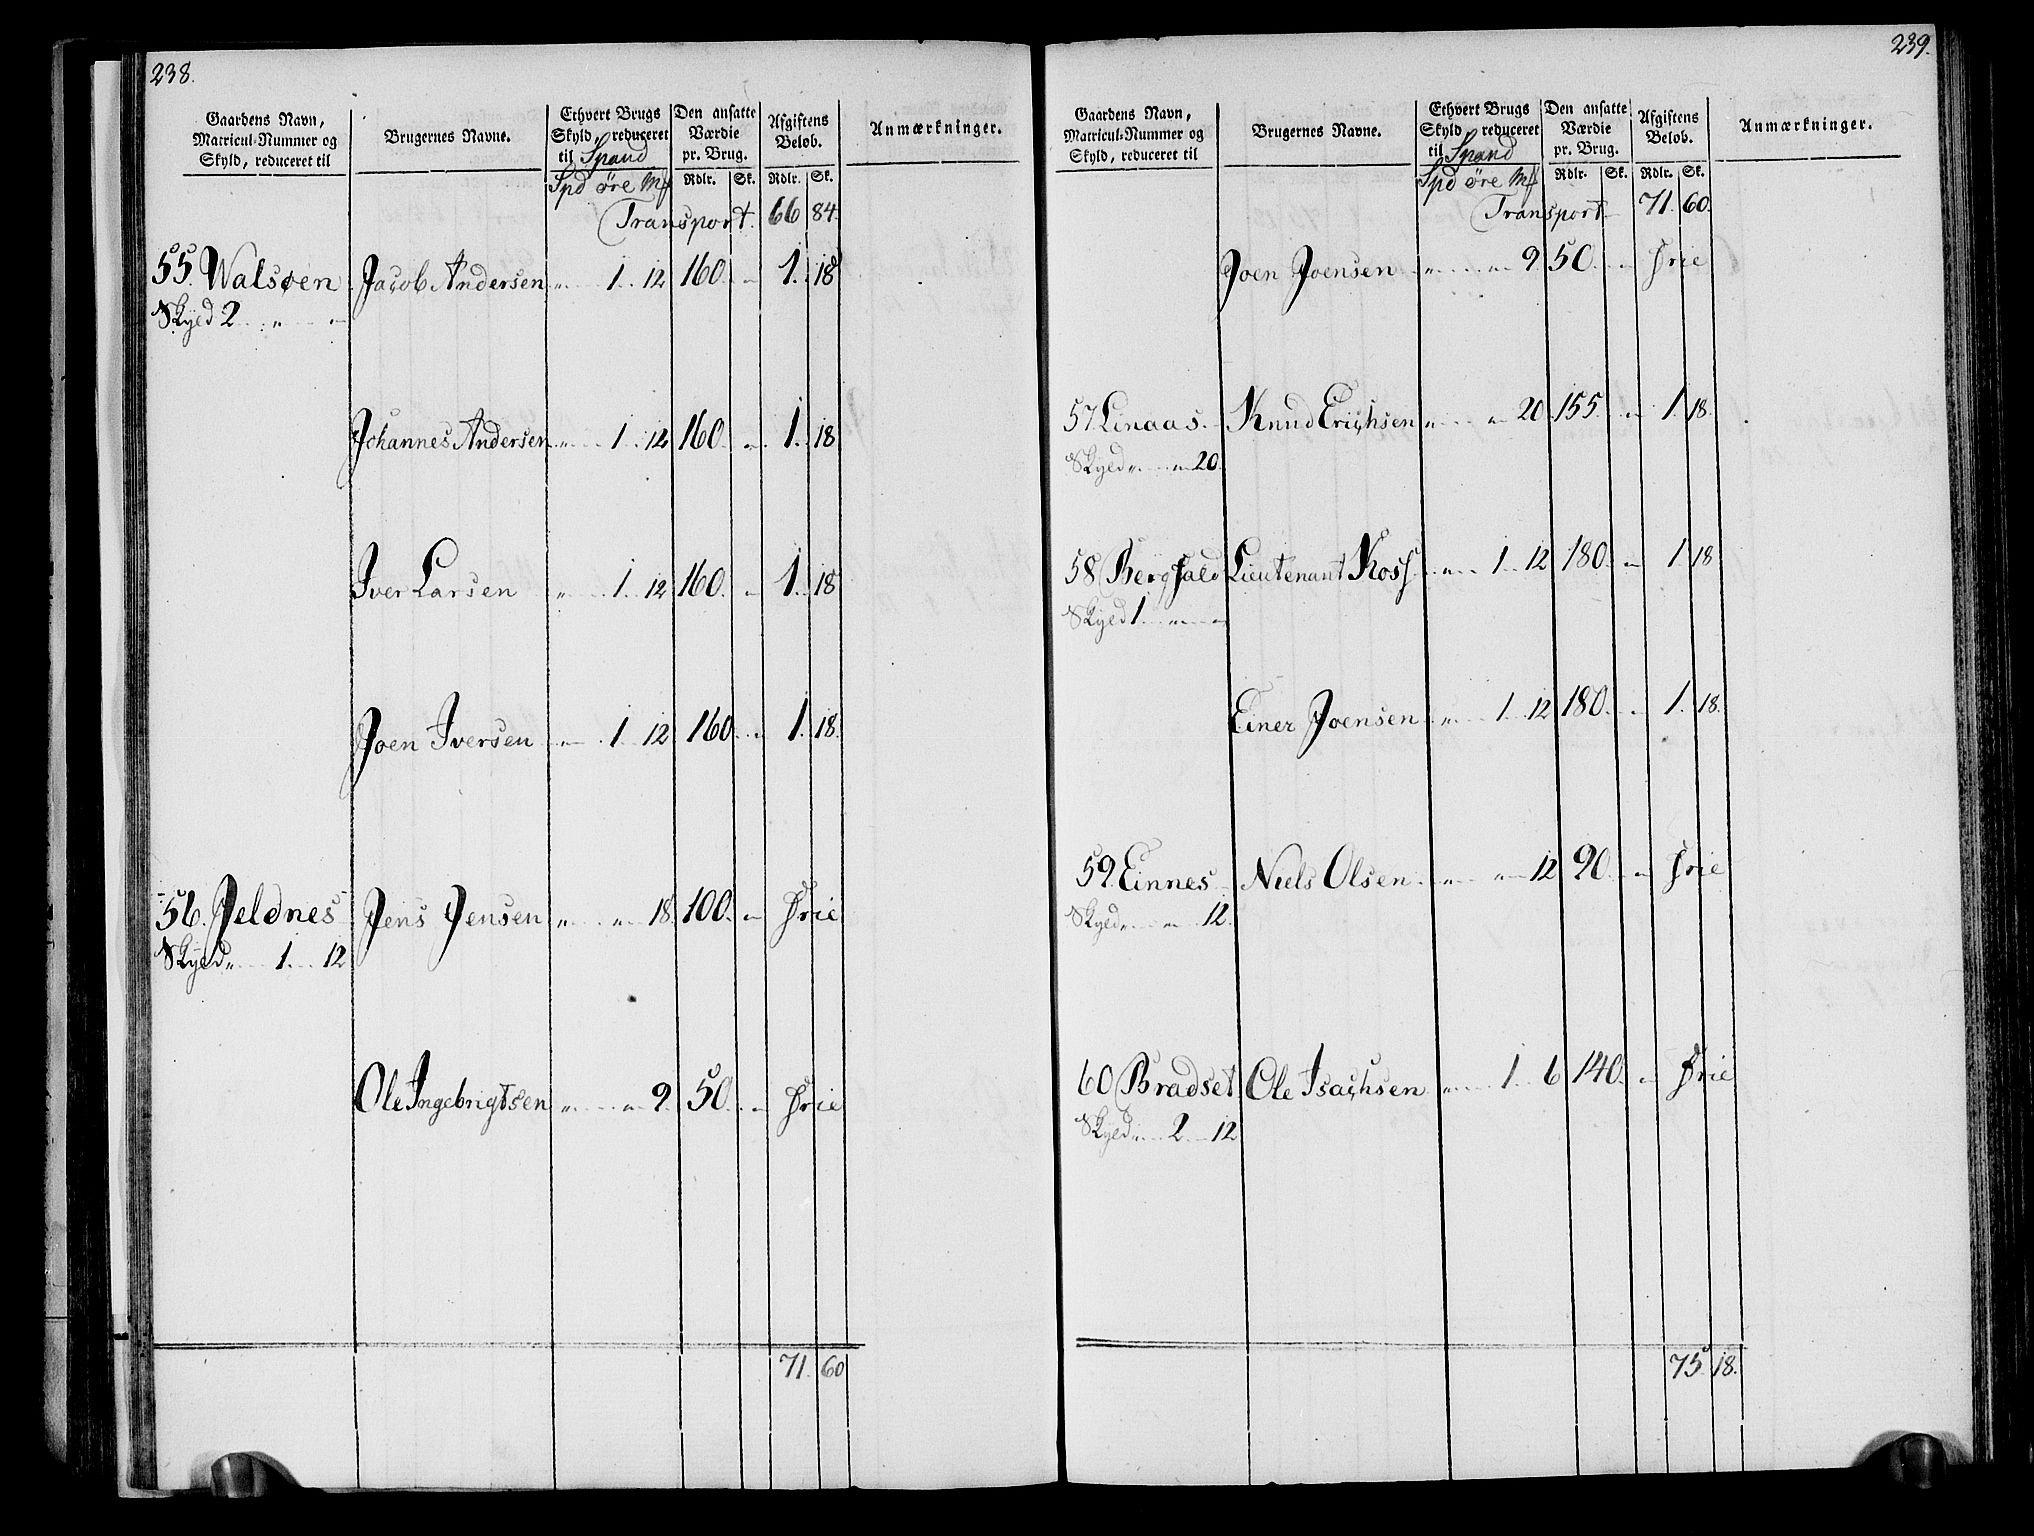 238.
Gaardens Navn, Matricul-Nummer og Skyld, reduceret til | Brugernes Navne. | Ethvert Brugs Skyld, reduceret til Spand | Den ansatte Værdie pr. Brug. | Afgiftens Belöb. | Anmærkninger.
Spd öre Mf | Rdlr. | Sk. | Rdlr. | Sk.
Transport. 66 84.
55. Walsøen Jacob Andersen " 1 12 160 " 1. 18
Skyld 2 " "
Johannes Andersen " 1 12 160 " 1. 18
Iver Larsen " 1 12 160. " 1. 18
Joen Iversen " 1 12 160 " 1. 18.
56. Jeldnes Jens Jensen " " 18. 100. " Frie
Skyld " 1 12
Ole Ingebrigtsen " " 9. 50. " Frie
71. 60
239.
Gaardens Navn, Matricul-Nummer og Skyld, reduceret til | Brugernes Navne. | Ethvert Brugs Skyld, reduceret til Spand | Den ansatte Værdie pr. Brug. | Afgiftens Belöb. | Anmærkninger.
Spd öre Mf | Rdlr. | Sk. | Rdlr. | Sk.
Transport 71. 60.
Joen Joensen " " 9 50. " Frie
57 Linaas. Knud Erichsen " " 20. 155. " 1. 18.
Skyld " " 20.
58 Bergfald Lieutenant Koss " 1 12 180. " 1 18
Skyld 1 " "
Einer Joensen " 1 12 180. " 1. 18.
59. Einnes Niels Olsen " " 12 90. " Frie
Skyld " " 12.
60 Bradset Ole Isachsen " 1 6 140. " Frie
Skyld " 2 12
75. 18.